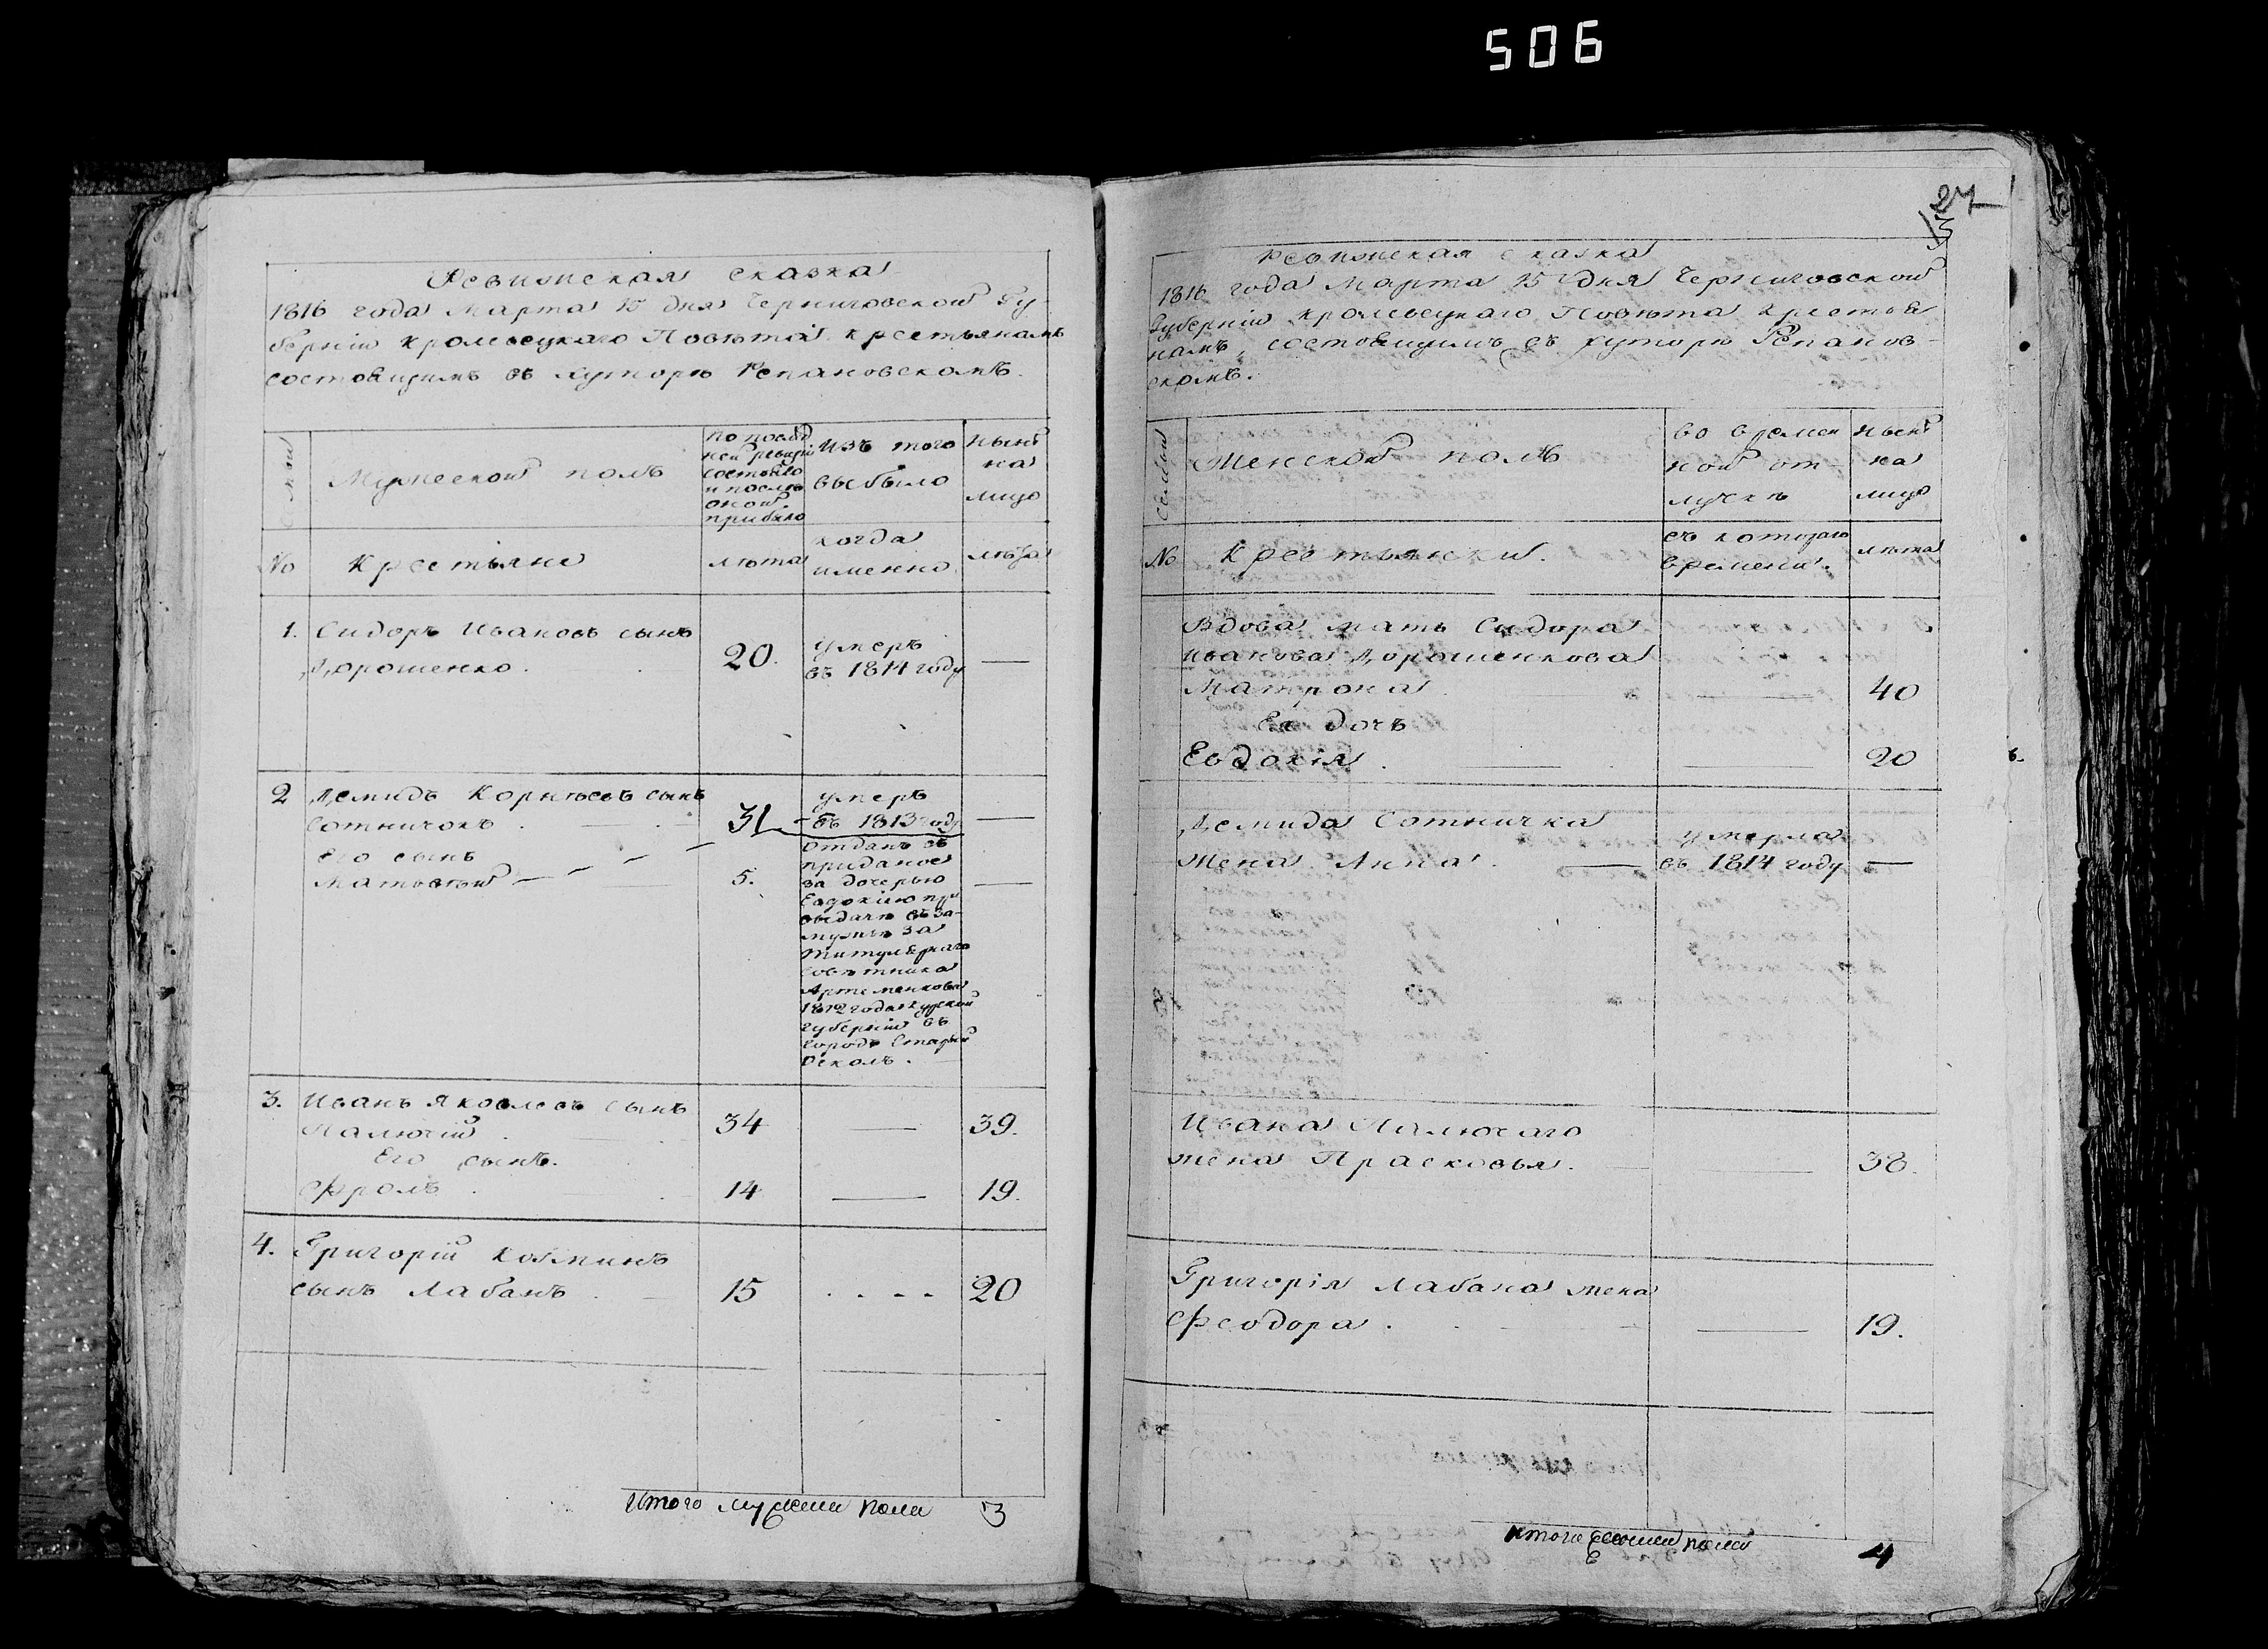 506
Ревижская сказка
1816 года Марта 15 дня Черниговской Гу-
берніи Кролевецкаго Повѣта крестьянамъ
состоящимъ въ хуторѣ Репановскомъ.
Мужеской полъ
по послѣд
ней ревизіи
состояло
и послѣ
оной
прибыло
Изъ того
выбыло
нынѣ
на
лицо
№
Крестьяне
лѣта
когда
именно
лѣта
1. Сидоръ Ивановъ сынъ
Дорошенко.
20.
умеръ
въ 1814 году
—
2 Демидъ Корнѣевъ сынъ
Сотничокъ
31
умеръ
въ 1813 году
—
Его сынъ
Матвѣй
5.
отданъ въ
приданое
за дочерью
Евдокіею при
выдачѣ въ за-
мужъ за
Титулярнаго
Совѣтника
Артеменкова
1812 года Курской
губерніи въ
городъ Старый
Осколъ.
—
3. Иванъ Яковлевъ сынъ
Палючій
34 — 39.
Его сынъ.
Фролъ
14 — 19.
4. Григорій Козминъ
сынъ Лабанъ
15 .... 20
Итого мужеска пола 3
27
13
Ревижская сказка
1816 года Марта 15 дня Черниговской
Губерніи Кролевецкаго Повѣта крестья
намъ, состоящимъ въ хуторѣ Репанов-
скомъ.
Семьи
Женской полъ
во времен
ной от-
лучкѣ
нынѣ
на
лицо
№
Крестьянки.
съ котораго
времени.
лѣта
Вдова мать Сидора
Иванова Дорошенкова
Матрона — 40
Ея дочь
Евдокія. — 20
Демида Сотничка
жена Анна. —
умерла
въ 1814 году
—
Ивана Палючаго
жена Прасковья. — 38.
Григорія Лабана жена
Феодора. — 19.
Итого женска пола 4